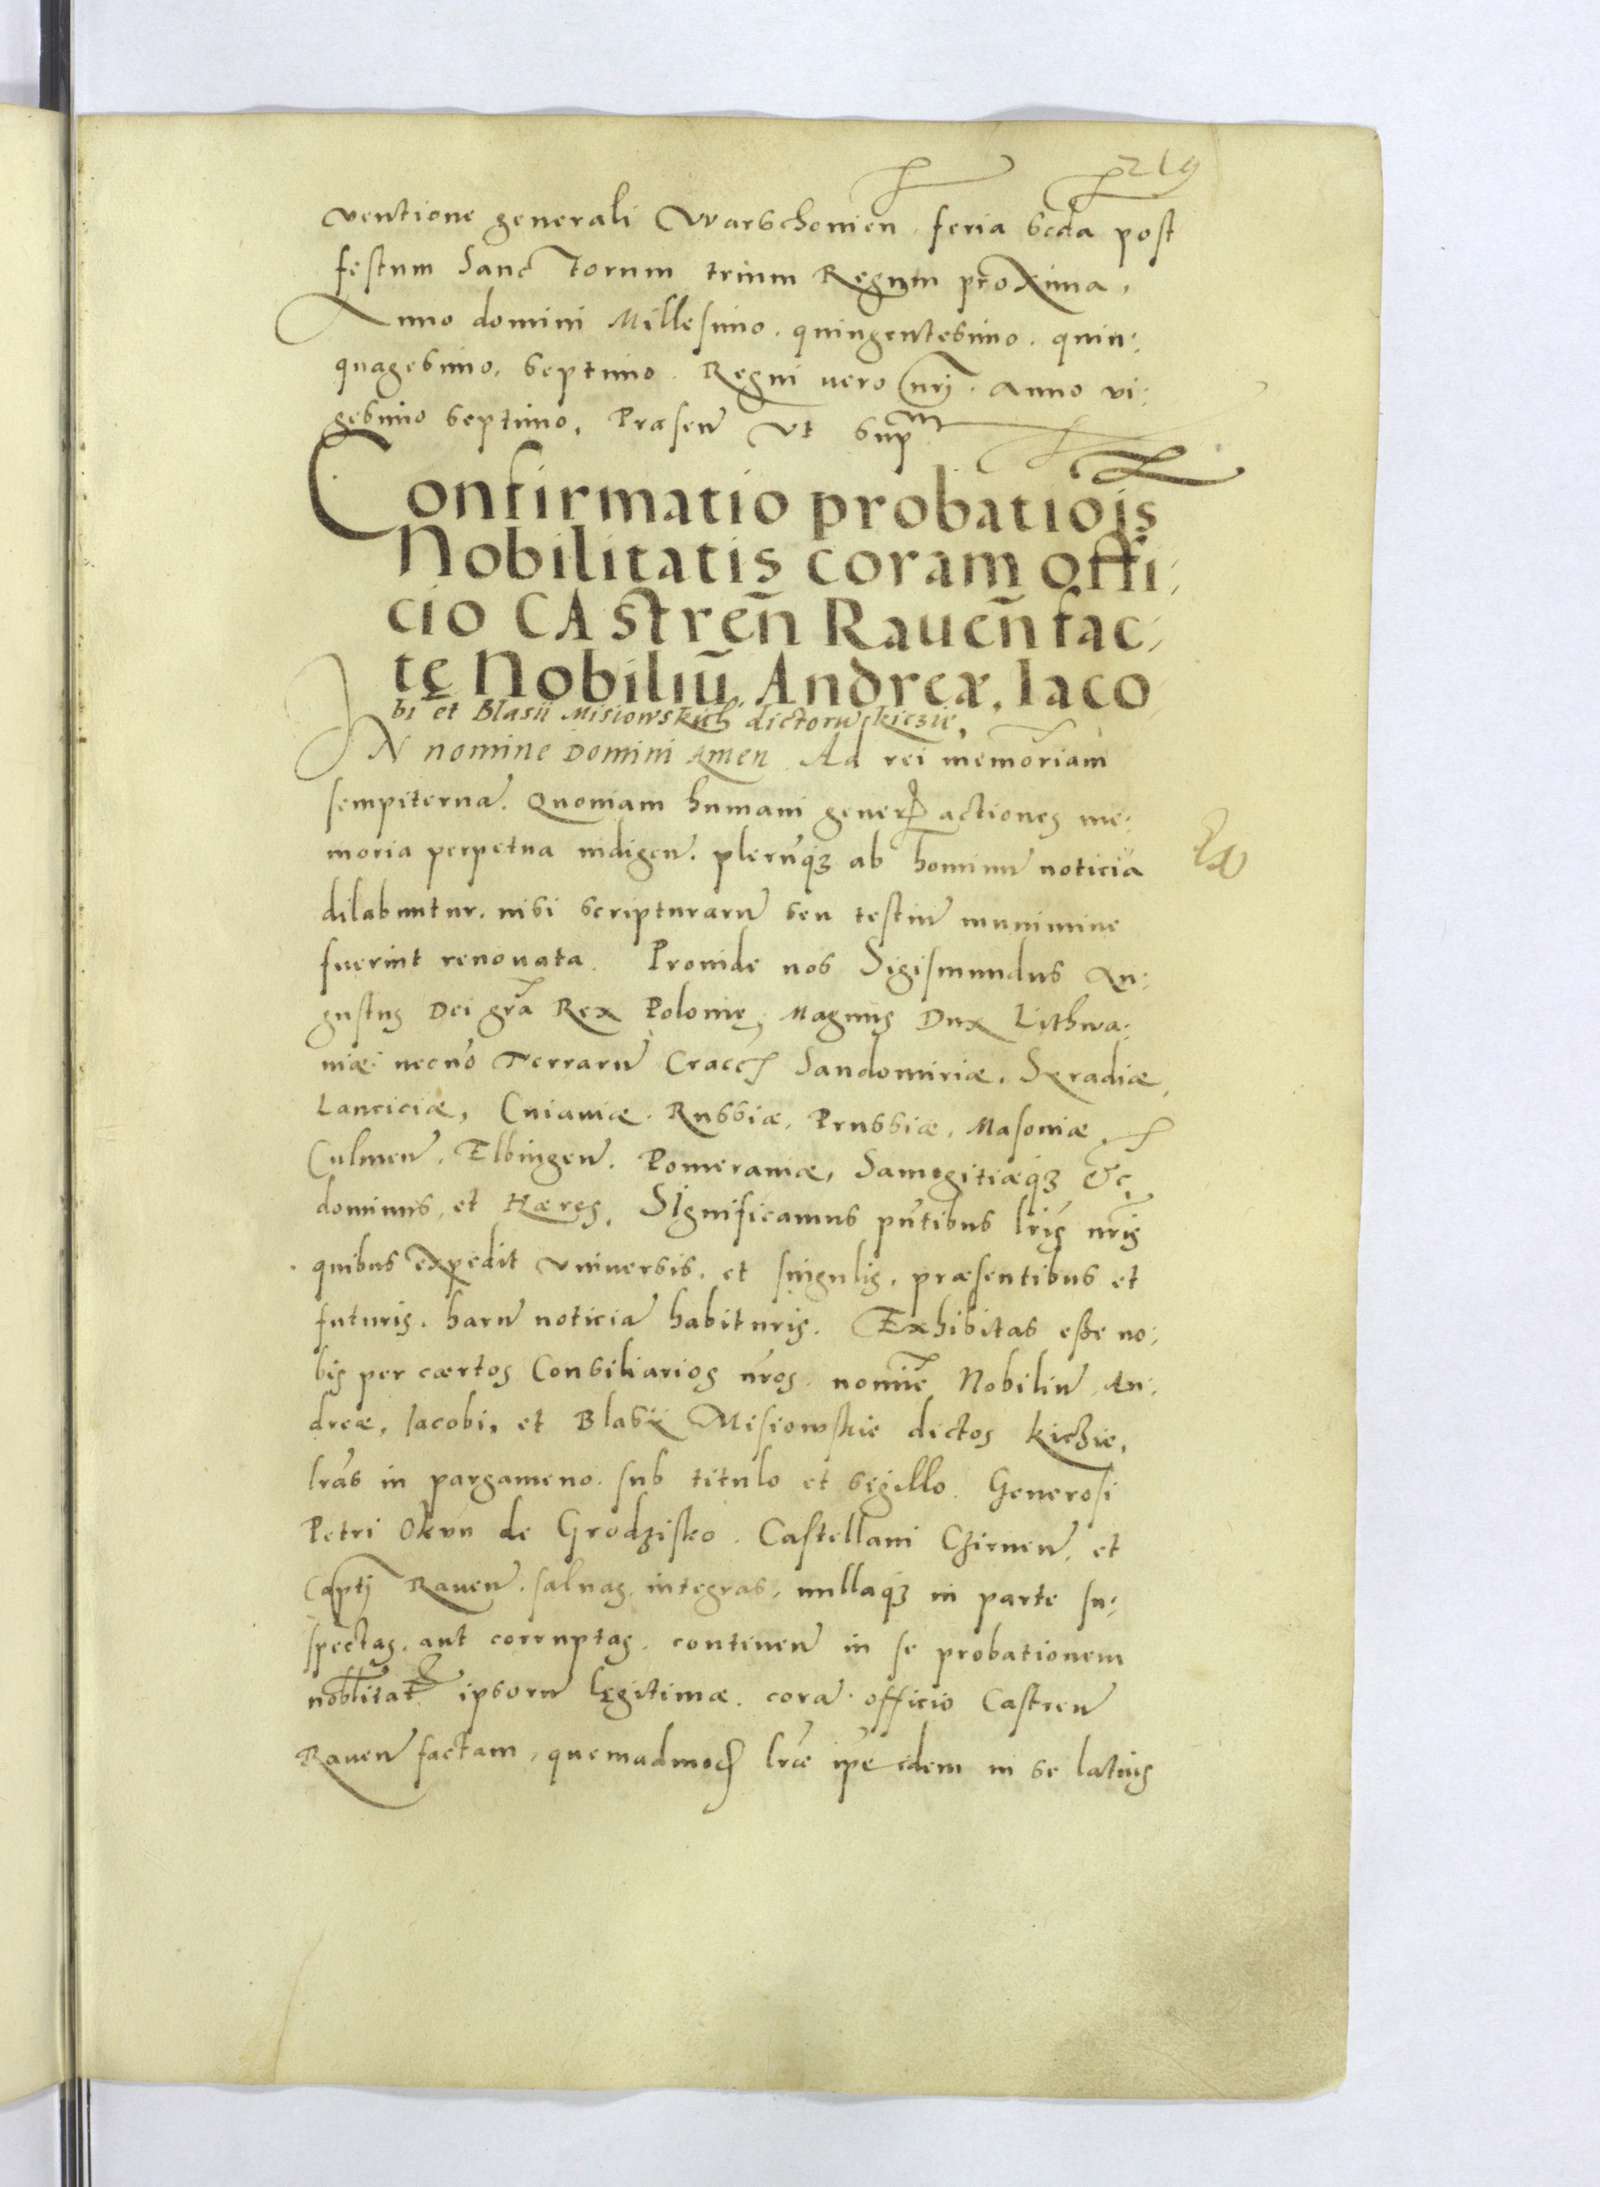 219
uentione generali Warschouien feria scda post
festum Sanctorum trium Regum proxima,
Anno domini Millesimo. quingentesimo. quin:
quagesimo, septimo. Regni uero nrj. Anno vi:
gesimo septimo, Præsen̄ vt sup
Confirmatio probatiois
Nobilitatis coram offi:
cio CAstren̄ Rauen̄ fac:
tę Nobiliū Andreæ, Iaco
bi et Blasii Misiowskich dictorū kiczie,
IN nomine Domini Amen Ad rei memoriam
sempiternā. Quoniam humani gener actiones me:
moria perpetua indigen̄. plerūq3 ab hominū noticia
dilabuntur. nisi scripturarū seu testiū munimine
fuerint renouata. Proinde nos Sigismundus Au:
gustus Dei gra Rex Polonię, Magnus Dux Lithua:
niæ. necnō Terrarū Cracc Sandomiriæ. Syradiæ,
Lanciciæ, Cuiauiæ. Russiæ, Prussiæ, Masouiæ,
Culmen̄. Elbingen̄. Pomeraniæ, Samogitiæq3 &c,
dominus, et Hæres, SIgnificamus pn̄tibus lris nris
quibus expedit vniuersis. et singulis, præsentibus et
futuris. harū noticiā habituris. Exhibitas eße no:
bis per cærtos Consiliarios nros. nomine Nobiliū An:
dreæ, Iacobi, et Blasij Misiowskie dictos kiczie,
lras in pargameno. sub titulo et sigillo. Generosi
Petri Okvn de Grodzisko. Castellani Czirnen̄. et
Captj Rauen̄. saluas, integras, nullaq3 in parte su:
spectas, aut corruptas. continen̄ in se probationem
noblitat ipsorū lęgitimæ. corā officio Castren̄
Rauen̄ factam, quemadmod lræ ipe edem in se latius